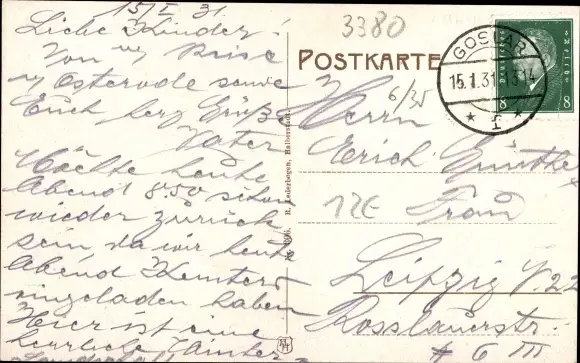 15 I 31
Liebe Kinder!
Von Reise
Osterode sowie
Euch herz Grüße
Vater
Möchte heute
Abend 8.50 schon
wieder zurück
sein da wir heute
Abend
eingeladen haben
Hier ist eine
herrliche Winter
3380
POSTKARTE
GOSLAR
15.1.31.13-14
1
Deutsches Reich
8 8
6/35
R. Lederbogen, Halberstadt
Herrn
Erich Günther
12E Frau
Leipzig
Rosslauerstr.
6 III